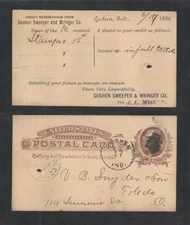 CREDIT MEMORANDUM FROM
Goshen Sweeper and Wringer Co.
Goshen, Ind., 3/19 1886
Yours of the 10 received placed to your credit as follows:
Stamps 15¢ in full to date
Soliciting your future patronage we remain
Yours Very Respectfully,
GOSHEN SWEEPER & WRINGER CO.
Per
UNITED STATES
POSTAL CARD
Nothing but the address to be on this side.
IND.
V. B. Snyder & Son
Toledo
119 Summit O